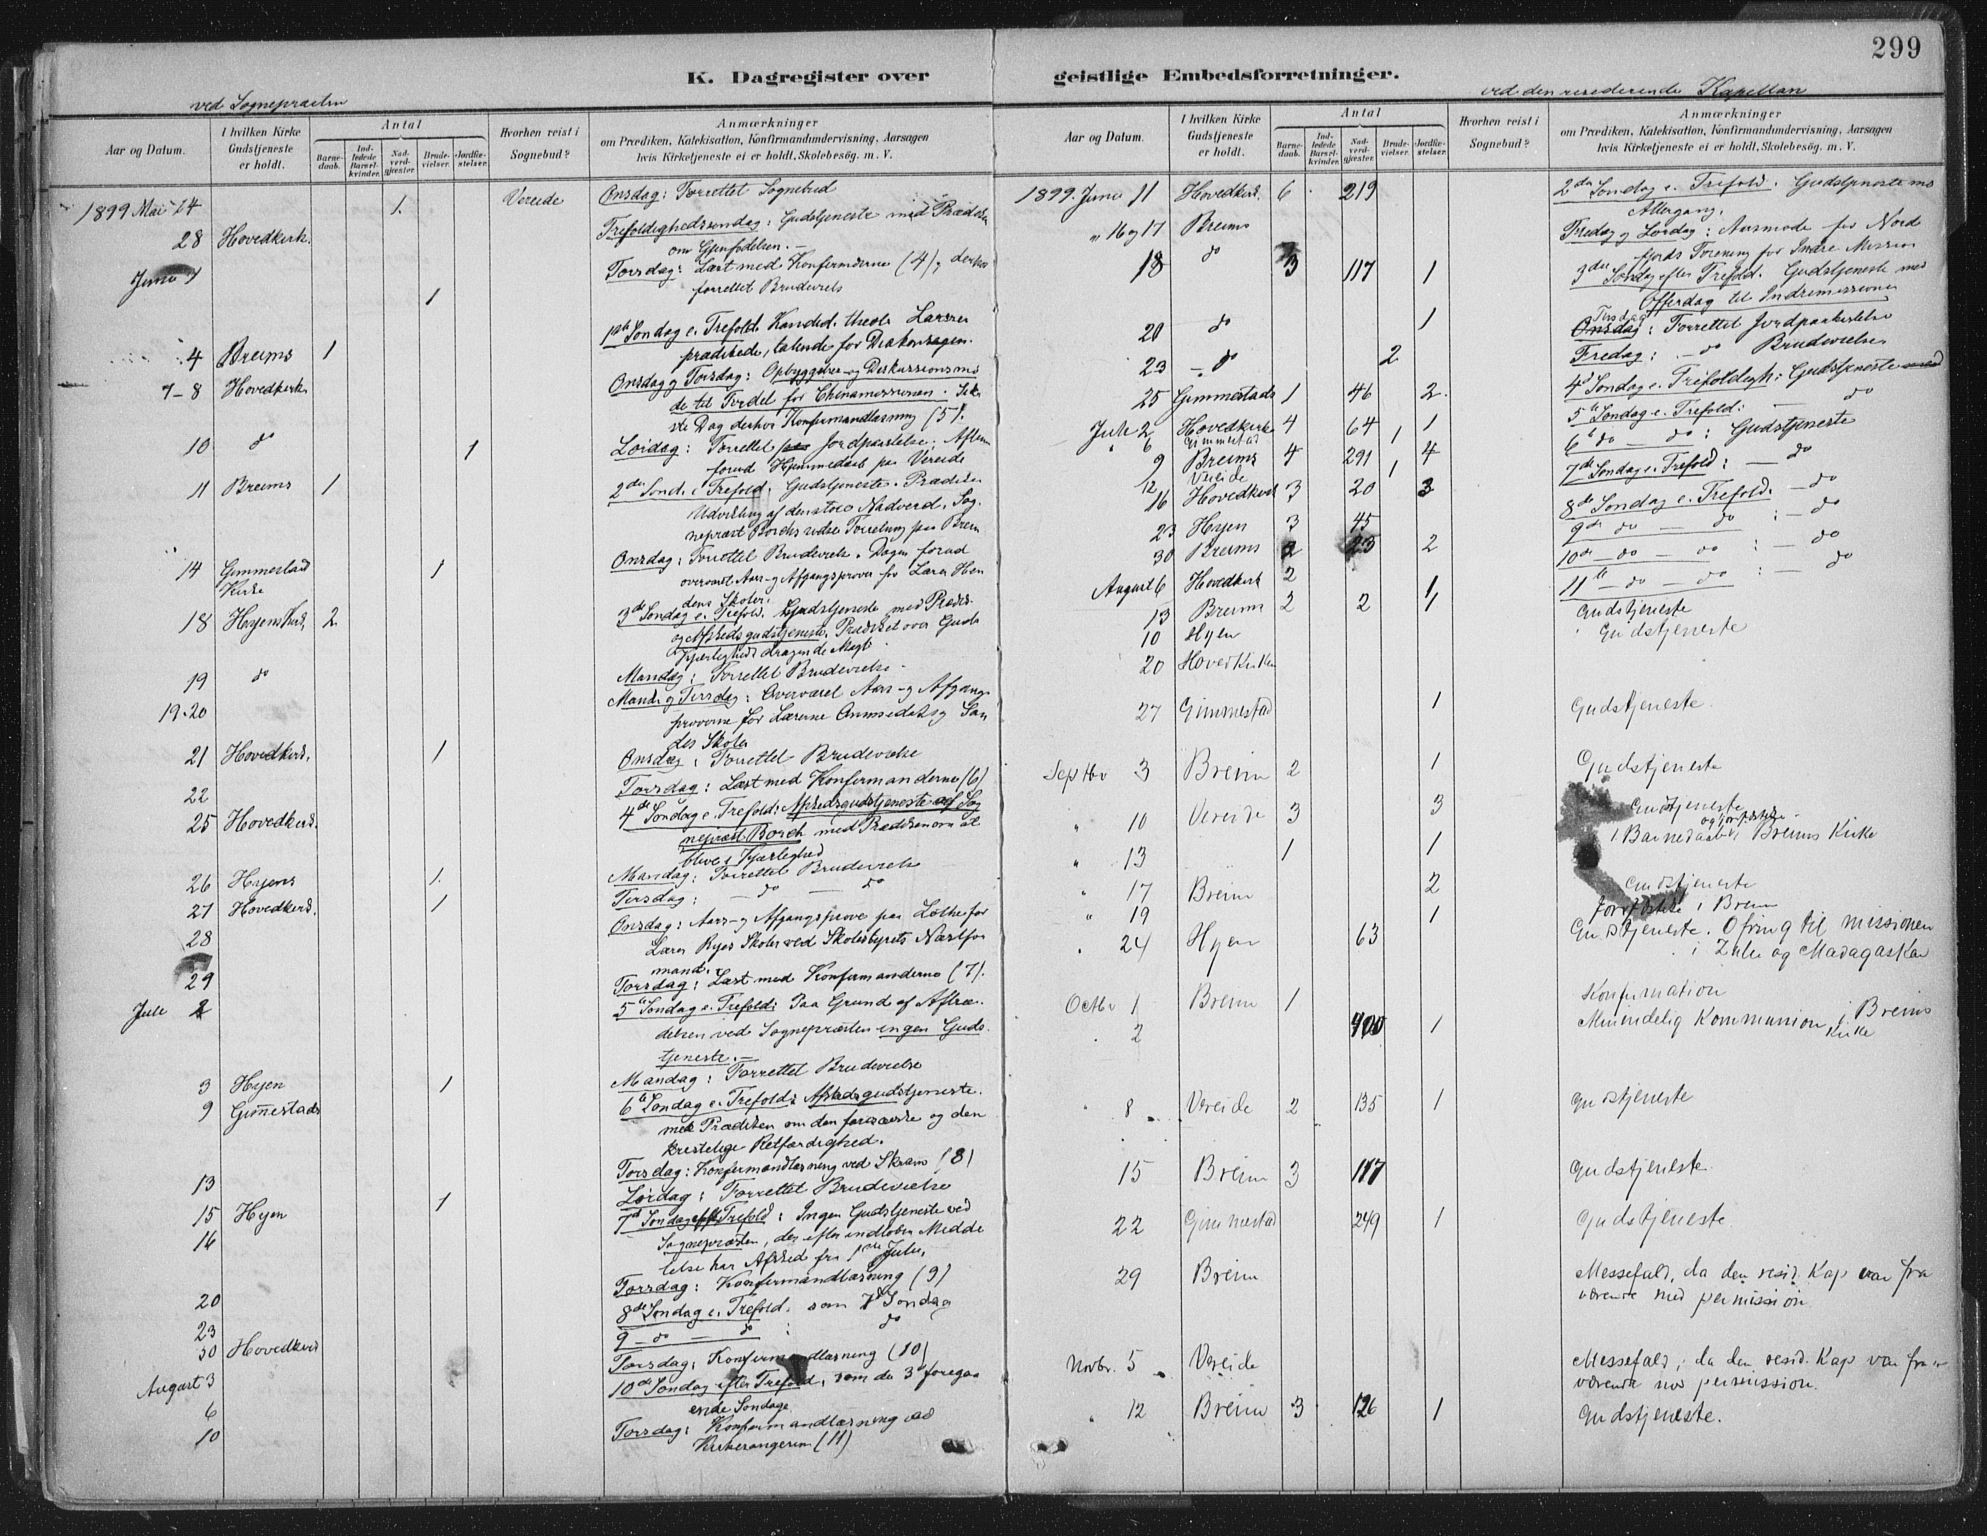 299
K. Dagregister over
geistlige Embedsforretninger.
ved Sognepræsten
Aar og Datum.
I hvilken Kirke Gudstjeneste er holdt.
Antal
Barne-daab.
Ind-ledede Barsel-kvinder.
Nad-verd-gjæster.
Brude-vielser.
Jordfæ-stelser.
Hvorhen reist i Sognebud?
Anmærkninger
om Prædiken, Katekisation, Konfirmandundervisning, Aarsagen
hvis Kirketjeneste ei er holdt, Skolebesøg. m. V.
1899 Mai 24 1. Vereide Onsdag: Forrettet Sognebud
28 Hovedkirk. Trefoldighedssøndag: Gudstjeneste med Prædiken
om Gjenfødelsen.
Juni 1 Torsdag: Læst med Konfirmanderne (4), derhos
1 forrettet Brudevielse
4 Breims 1 1ste Søndag e. Trefold. Kandid. theol. Larsen
prædikede, talende for Diakonsagen.
7-8 Hovedkirk Onsdag og Torsdag: Opbyggelse- og Diskussionsmø
de til Fordel for Chinamissionen. Sid
ste Dag derhos Konfirmandlæsning (5).
10 do 1 Lørdag: Forrettet Jordpaakastelse. Aften
forud Hjemmedaab paa Vereide
11 Breims 1 2den Sønd. e. Trefold. Gudstjeneste. Prædiken
Udvikling af den store Nadverd. Sog
nepræst Borchs sidste Forretning paa Breim
14 Gimmestad Kirke 1 Onsdag: Forrettet Brudevielse. Dagen forud
overværet Aars- og Afgangsprøver for Lærer
dens Skoler.
18 Hyens Kirk. 2 3de Søndag e. Trefold. Gudstjeneste med Prædik.
og Afskedsgudstjeneste. Prædiket over Guds
Kjærligheds dragende Magt
19 do Mandag: Forrettet Brudevielse.
19-20 Mand. og Tirsdag: Overværet Aars- og Afgangs
prøverne for Lærerne Ommedal og San
des Skoler
21 Hovedkirk. 1 Onsdag: Forrettet Brudevielse
22 Torsdag: Læst med Konfirmanderne (6)
25 Hovedkirk. 4de Søndag e. Trefold: Afskedsgudstjeneste af Sog
nepræst Borch med Prædiken om at
blive i Kjærlighed
26 Hyens 1. Mandag: Forrettet Brudevielse
27 Hovedkirk. 1 Tirsdag: do — do
28 Onsdag: Aars- og Afgangsprøve paa Lothe for
Lærer Ryes Skoler ved Skolestyrets Næstfor
mand.
29 Torsdag: Læst med Konfirmanderne (7).
Juli 2 5te Søndag e. Trefold: Paa Grund af Aftræ-
delsen ved Sognepræsten ingen Guds-
tjeneste.
3 Hyen 1 Mandag: Forrettet Brudevielse
9 Gimestads 6te Søndag e. Trefold: Afskedsgudstjeneste
med Prædiken om den farisæiske og den
kristelige Retfærdighed.
13 Torsdag: Konfirmandlæsning ved Skram (8)
15 Hyen 1 Lørdag: Forrettet Brudevielse
16 7de Søndag efter Trefold: Ingen Gudstjeneste ved
Sognepræsten, der efter indløben Medde
lelse har Afsked fra 1ste Juli.
20 Torsdag: Konfirmandlæsning (9)
23 8de Søndag e. Trefold. som 7d Søndag
30 Hovedkirk 9 — do — do : do
August 3 Torsdag: Konfirmandlæsning (10)
6 10de Søndag efter Trefold, som de 3 foregaa
ende Søndage
10 Torsdag: Konfirmandlæsning ved
(11)
ved den residerende Kapellan
Aar og Datum.
I hvilken Kirke Gudstjeneste er holdt.
Antal
Barne-daab.
Ind-ledede Barsel-kvinder.
Nad-verd-gjæster.
Brude-vielser.
Jordfæ-stelser.
Hvorhen reist i Sognebud?
Anmærkninger
om Prædiken, Katekisation, Konfirmandundervisning, Aarsagen
hvis Kirketjeneste ei er holdt, Skolebesøg. m. V.
1899. Juni 11 Hovedkirk. 6 219 2den Søndag e. Trefold. Gudstjeneste med
Altergang.
" 16 og 17 Breims Fredag og Lørdag: Aarsmøde for Nord
fjords Forening for Indre Mission
18 do 3 117 1 3die Søndag efter Trefold. Gudstjeneste med
Offerdag til Indremissionen
20 do 1 Tirsdag: Forrettet Jordpaakastelse
23 - do 2 Fredag: - do Brudevielse
25 Gimmestads 1 46 2. 4d Søndag e. Trefoldigh: Gudstjeneste
Juli 2 Hovedkirke 4 64 1 5te Søndag e. Trefold: — do
6 Gimmestad 1
9 Breims 4 291 4 6te do — do: Gudstjeneste
12 Vereide 1
16 Hovedkirk 3 20 3 7de Søndag e. Trefold: — do
23 Hyen 3 45 8de Søndag e. Trefold. — do
30 Breims 2 23 2 9de do — do : — do
August 6 Hovedkirk 2 1 10de — do — do : — do
13 Breims 2 2 1 11te — do — do : — do
10 Hyen Gudstjeneste
20 Hovedkirken Gudstjeneste
27 Gimmestad 1 Gudstjeneste.
Septbr 3 Breim 2 1 Gudstjeneste
" 10 Vereide 3 3 Gudstjeneste
" 13 1 1 1 Barnedaab og jordfæstelse i Breims Kirke
" 17 Breim 2 Gudstjeneste
" 19 1 Jordfæstelse i Breim
" 24 Hyen 63 Gudstjeneste. Ofring til missionen
i Zulu og Madagaskar
Octbr 1 Breim 1 Konfirmation
" 2 400 1 Almindelig Kommunion i Breims Kirke
" 8 Vereide 2 135 1 Gudstjeneste
15 Breim 3 117 Gudstjeneste.
22 Gimmestad 249 1 Gudstjeneste.
29 Breim Messefald, da den resid. Kap var fra
værende med permission.
Novbr. 5 Vereide Messefald, da den resid. Kap var fra-
værende med permission.
" 12 Breim 3 126 1 Gudstjeneste.